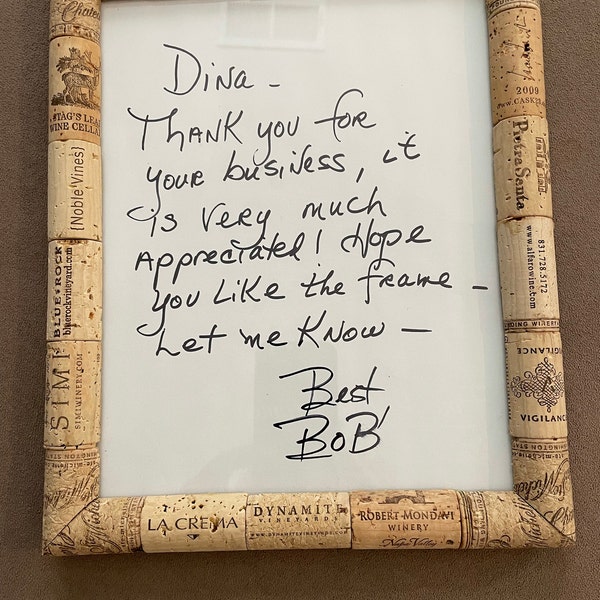 Dina -
Thank you for
your business, it
is very much
Appreciated! Hope
you like the frame -
Let me know -
Best
BoB
STAG'S LEA
WINE CELLA
[Noble Vines]
BLUE ROCK
bluerockvineyard.com
SIMI
SIMIWINERY.COM
LA CREMA
DYNAMITE
VINEYARDS
WWW.DYNAMITEVINEYARDS.COM
ROBERT MONDAVI
WINERY
Napa Valley
2009
Pietra Santa
831.728.5172
www.alfarowine.com
VIGILANCE
VIGILANC